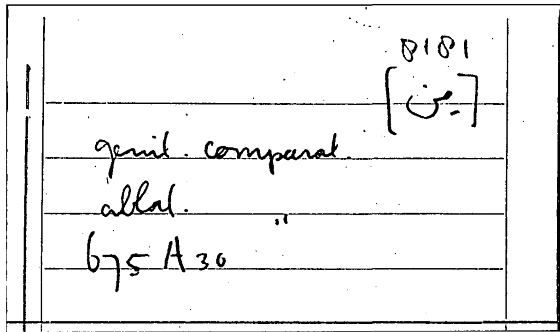 8181
[من]
genit. comparat.
ablat. "
675 A 30